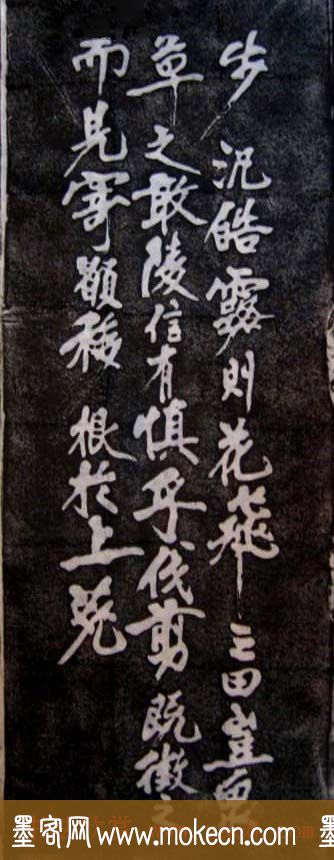 步 況皓露則花飛 三田豈
草之敢陵信有慎乎伐剪既徵之
而見寄願移根於上苑
墨客网 www.mokecn.com